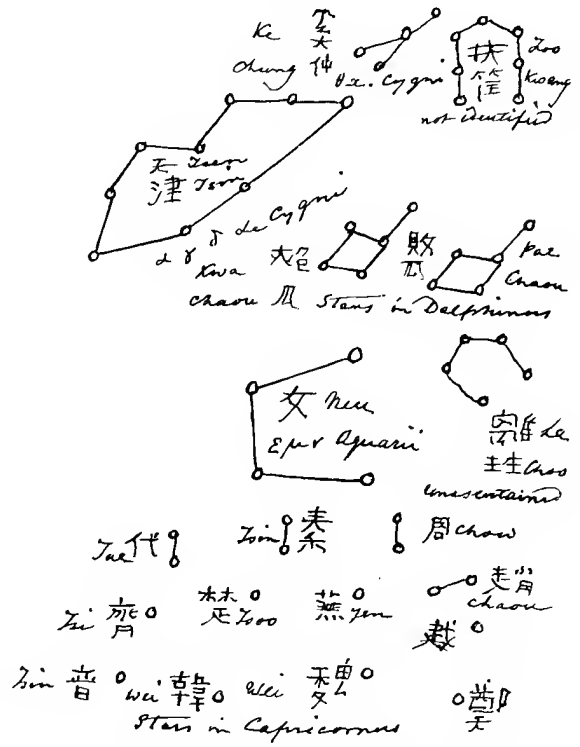 Ke 奚
Chung 仲
θ x. Cygni
扶 Foo
筐 Kwang
not identified
天 Tseen
津 Tsin
α γ δ &c Cygni
Kwa
Chaou 瓜 Stars in Delphinus
敗 Pae
瓜 Chaou
女 Neu
ε μ ν Aquarii
離 Le
Choo
unascertained
Tae 代
Tsin 秦
周 Chow
Tsi 齊
楚 Tsoo
燕 Yen
趙
Chaou
越
Tsin 晉
Wei 韓
Wei 魏
鄭
Stars in Capricornus